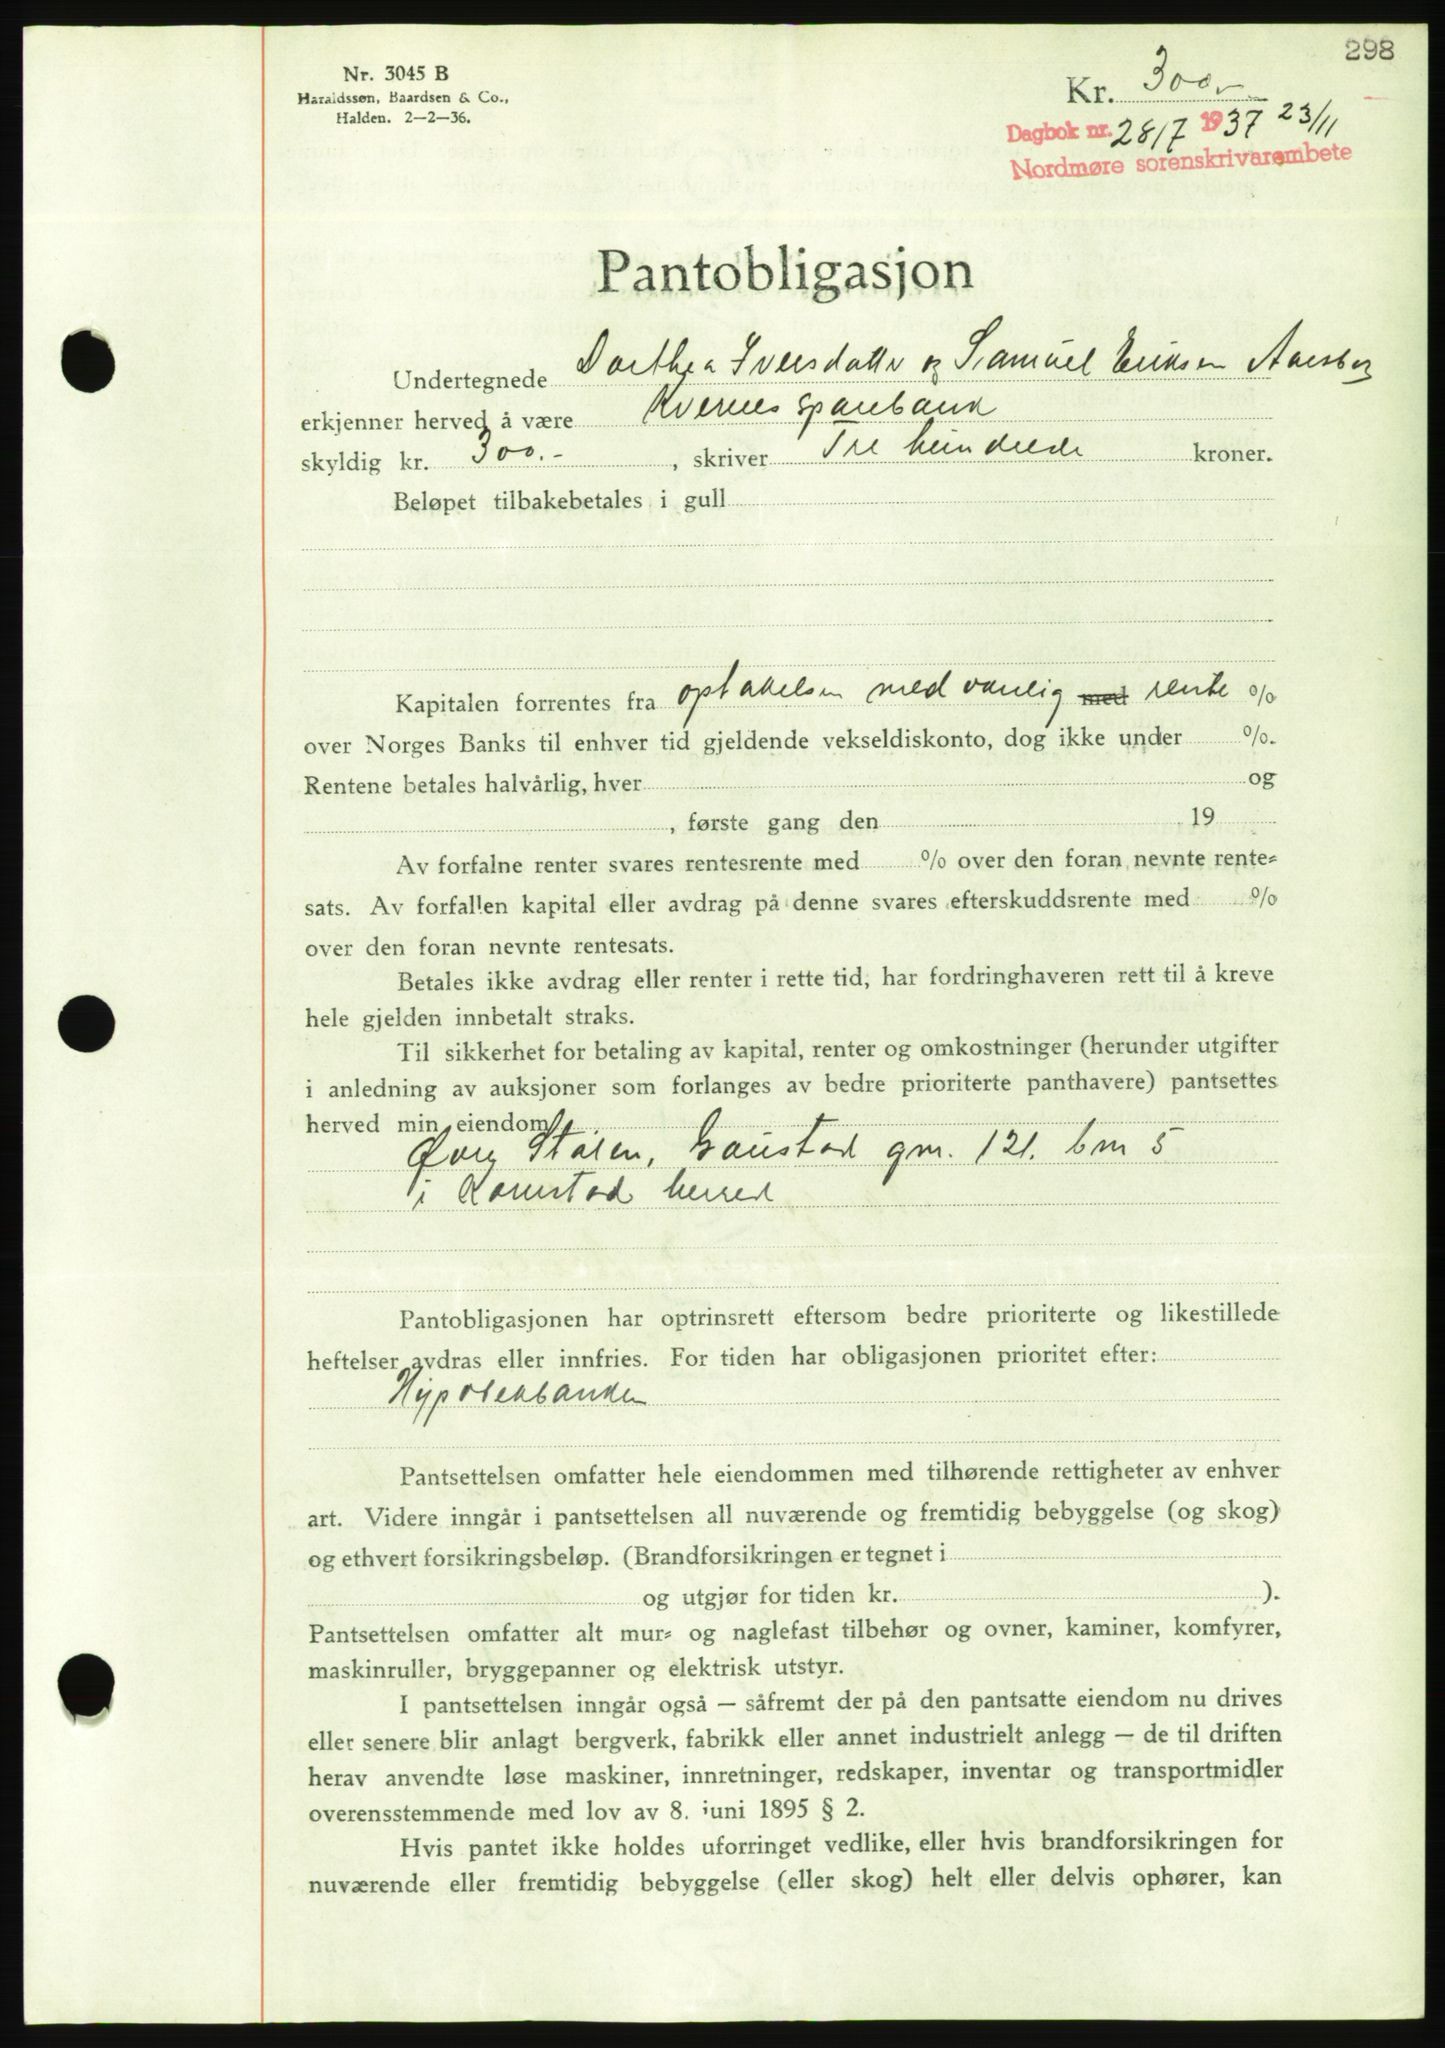 298
Nr. 3045 B
Haraldssøn, Baardsen & Co.,
Halden. 2—2—36.
Kr. 300,-
Dagbok nr. 2817 1937 23/11
Nordmøre sorenskrivarembete
Pantobligasjon
Undertegnede Dorthea Iversdatter og Samuel Eriksen
erkjenner herved å være Kvernes sparebank
skyldig kr. 300.- , skriver Tre hundrede kroner.
Beløpet tilbakebetales i gull
Kapitalen forrentes fra optakelsen med vanlig med rente %
over Norges Banks til enhver tid gjeldende vekseldiskonto, dog ikke under %.
Rentene betales halvårlig, hver og
, første gang den 19
Av forfalne renter svares rentesrente med % over den foran nevnte rente-
sats. Av forfallen kapital eller avdrag på denne svares efterskuddsrente med %
over den foran nevnte rentesats.
Betales ikke avdrag eller renter i rette tid, har fordringhaveren rett til å kreve
hele gjelden innbetalt straks.
Til sikkerhet for betaling av kapital, renter og omkostninger (herunder utgifter
i anledning av auksjoner som forlanges av bedre prioriterte panthavere) pantsettes
herved min eiendom
Øvre Stølen, Gaustad gnr. 121. bnr 5
i Kornstad herred
Pantobligasjonen har optrinsrett eftersom bedre prioriterte og likestillede
heftelser avdras eller innfries. For tiden har obligasjonen prioritet efter:
Hypotekbanken
Pantsettelsen omfatter hele eiendommen med tilhørende rettigheter av enhver
art. Videre inngår i pantsettelsen all nuværende og fremtidig bebyggelse (og skog)
og ethvert forsikringsbeløp. (Brandforsikringen er tegnet i
og utgjør for tiden kr. ).
Pantsettelsen omfatter alt mur- og naglefast tilbehør og ovner, kaminer, komfyrer,
maskinruller, bryggepanner og elektrisk utstyr.
I pantsettelsen inngår også — såfremt der på den pantsatte eiendom nu drives
eller senere blir anlagt bergverk, fabrikk eller annet industrielt anlegg — de til driften
herav anvendte løse maskiner, innretninger, redskaper, inventar og transportmidler
overensstemmende med lov av 8. juni 1895 § 2.
Hvis pantet ikke holdes uforringet vedlike, eller hvis brandforsikringen for
nuværende eller fremtidig bebyggelse (eller skog) helt eller delvis ophører, kan